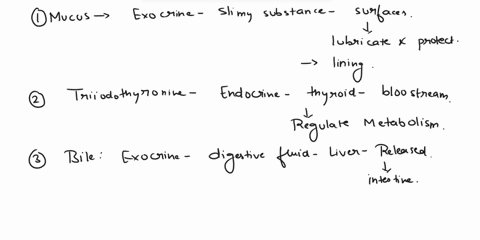 ① Mucus → Exocrine - Slimy substance - surfaces.
↓
lubricate & protect.
→ lining.
② Triiodothyronine - Endocrine - thyroid - bloostream.
↓
Regulate Metabolism.
③ Bile: Exocrine - digestive fluid - Liver - Released.
↓
intestine.